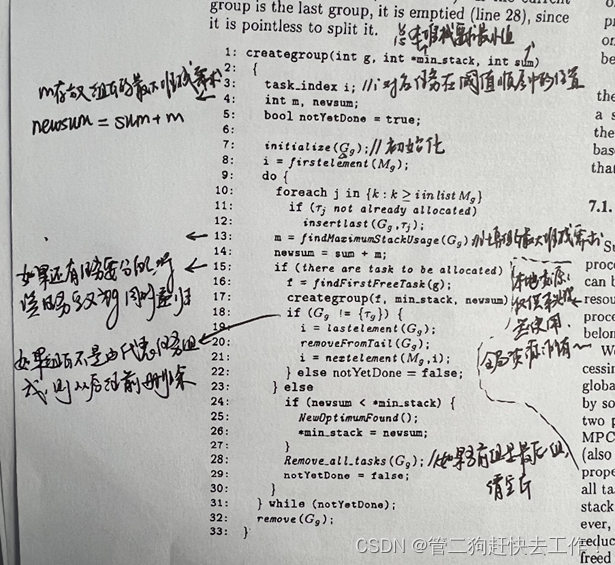 group is the last group, it is emptied (line 28), since
it is pointless to split it.
总本堆栈需求最小值
1: creategroup(int g, int *min_stack, int sum)
2: {
3: task_index i; //i对应任务在阈值顺序中的位置
4: int m, newsum;
5: bool notYetDone = true;
6:
7: initialize(Gg); //初始化
8: i = firstelement(Mg);
9: do {
10: foreach j in {k : k ≥ i in list Mg}
11: if (τj not already allocated)
12: insertlast(Gg,τj);
13: m = findMaximumStackUsage(Gg)
14: newsum = sum + m;
15: if (there are task to be allocated)
16: f = findFirstFreeTask(g);
17: creategroup(f, min_stack, newsum)
18: if (Gg != {τg}) {
19: i = lastelement(Gg);
20: removeFromTail(Gg);
21: i = nextelement(Mg,i);
22: } else notYetDone = false;
23: } else
24: if (newsum < *min_stack) {
25: NewOptimumFound();
26: *min_stack = newsum;
27: }
28: Remove_all_tasks(Gg); //如果当前组是最后一组,
清空后
29: notYetDone = false;
30: }
31: } while (notYetDone);
32: remove(Gg);
33: }
newsum = sum + m
如果还有任务要分配,
如果组不是由代表任务组
成,则从后往前删除
使用,
7.1.
Su
proces
can b
resou
proce
belon
W
cessin
global
by so
two p
MPC
(also
prope
all ta
stack
ever,
reduc
freed
CSDN @管二狗赶快去工作!